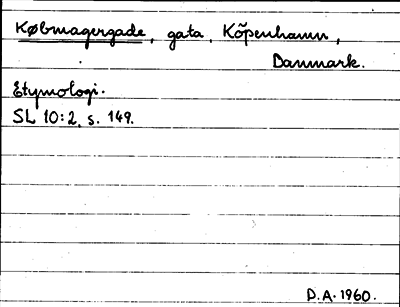 Købmagergade, gata, Köpenhamn,
Danmark.
Etymologi.
SL 10:2, s. 149.
D.A. 1960.